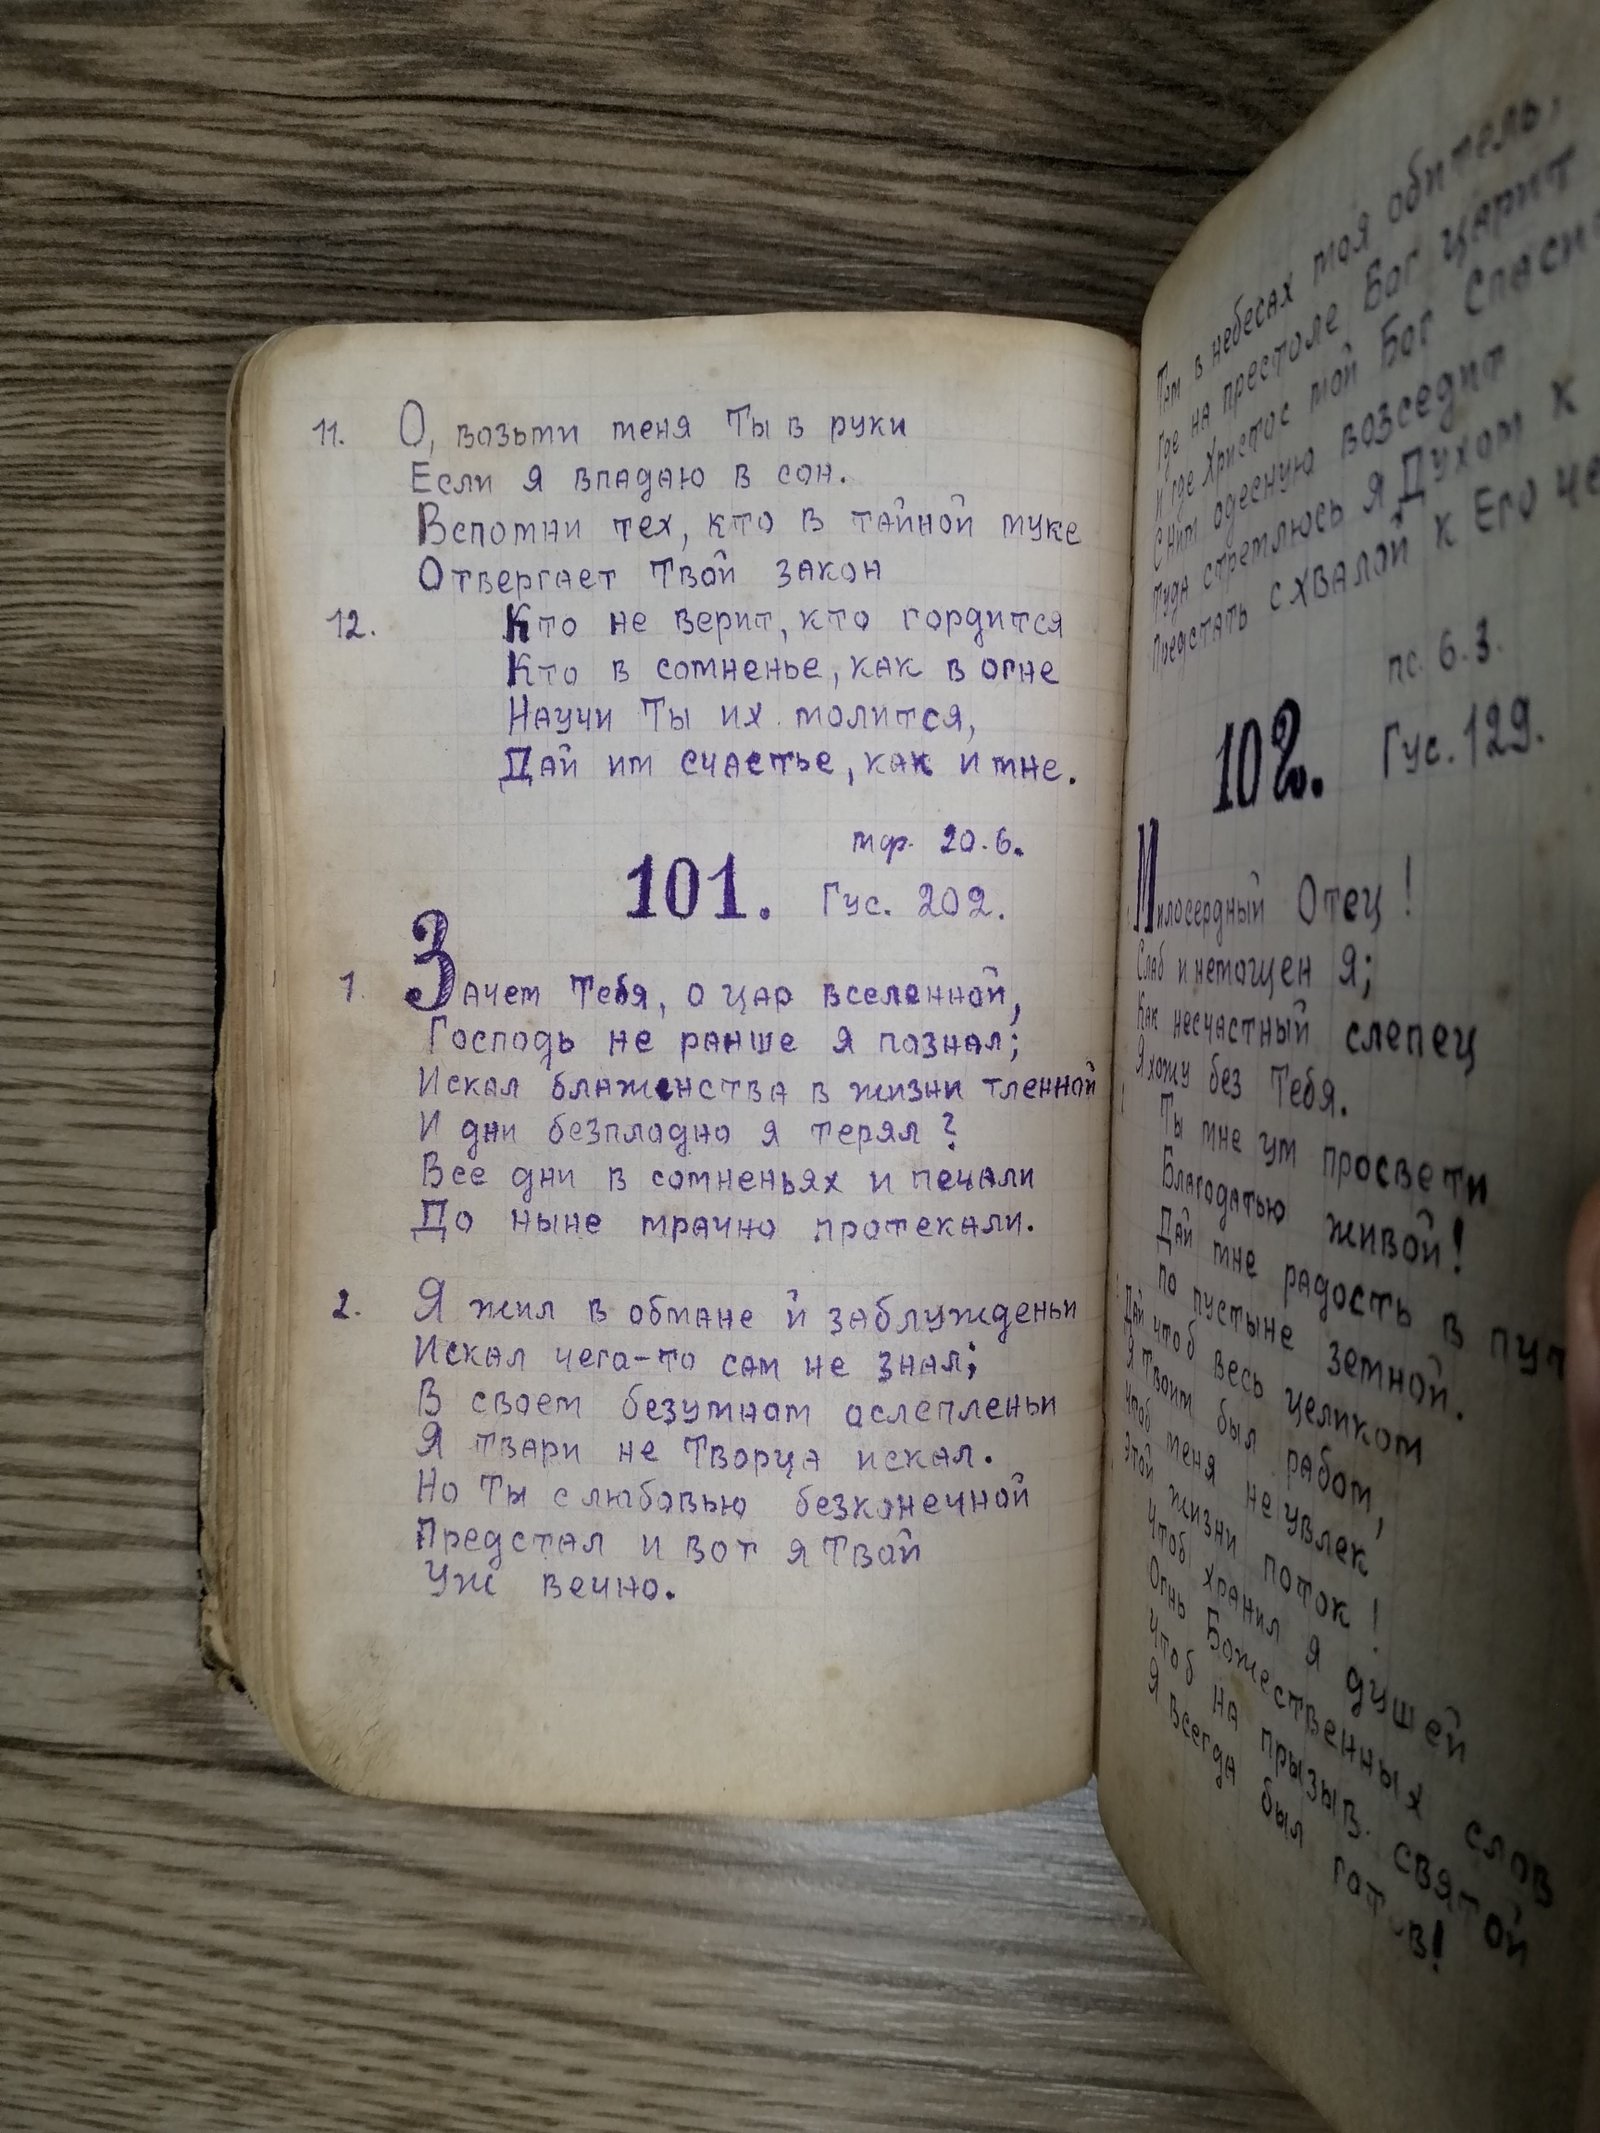 11. О, возьми меня Ты в руки
Если я впадаю в сон.
Вспомни тех, кто в тайной муке
Отвергает Твой закон
12. Кто не верит, кто гордится
Кто в сомненье, как в огне
Научи Ты их молится,
Дай им счастье, как и мне.
мф. 20.6.
101. Гус. 202.
1. Зачем Тебя, о цар вселенной,
Господь не ранше я познал;
Искал блаженства в жизни тленной
И дни безплодно я терял?
Все дни в сомненьях и печали
До ныне мрачно протекали.
2. Я жил в обмане й заблужденьи
Искал чего-то сам не знал;
В своем безумном ослепленьи
Я твари не Творца искал.
Но Ты с любовью безконечной
Предстал и вот я Твой
Уж вечно.
Там в небесах моя обитель,
Где на престоле Бог царит
И где Христос мой Бог
С ним одесную возседит
Туда стремлюсь я Духом к
Предстать с хвалой к Его
пс. 6.3.
102. Гус. 129.
Милосердный Отец!
Слаб и немощен я;
Как несчастный слепец
Я хожу без Тебя.
Ты мне ум просвети
Благодатью живой!
Дай мне радость в
по пустыне земной.
Дай чтоб весь целиком
Я твоим был рабом,
Чтоб меня не увлек
Этой жизни поток!
Чтоб хранил я душей
Огнь Божественных слов
Чтоб на призыв святой
Я всегда был готов!